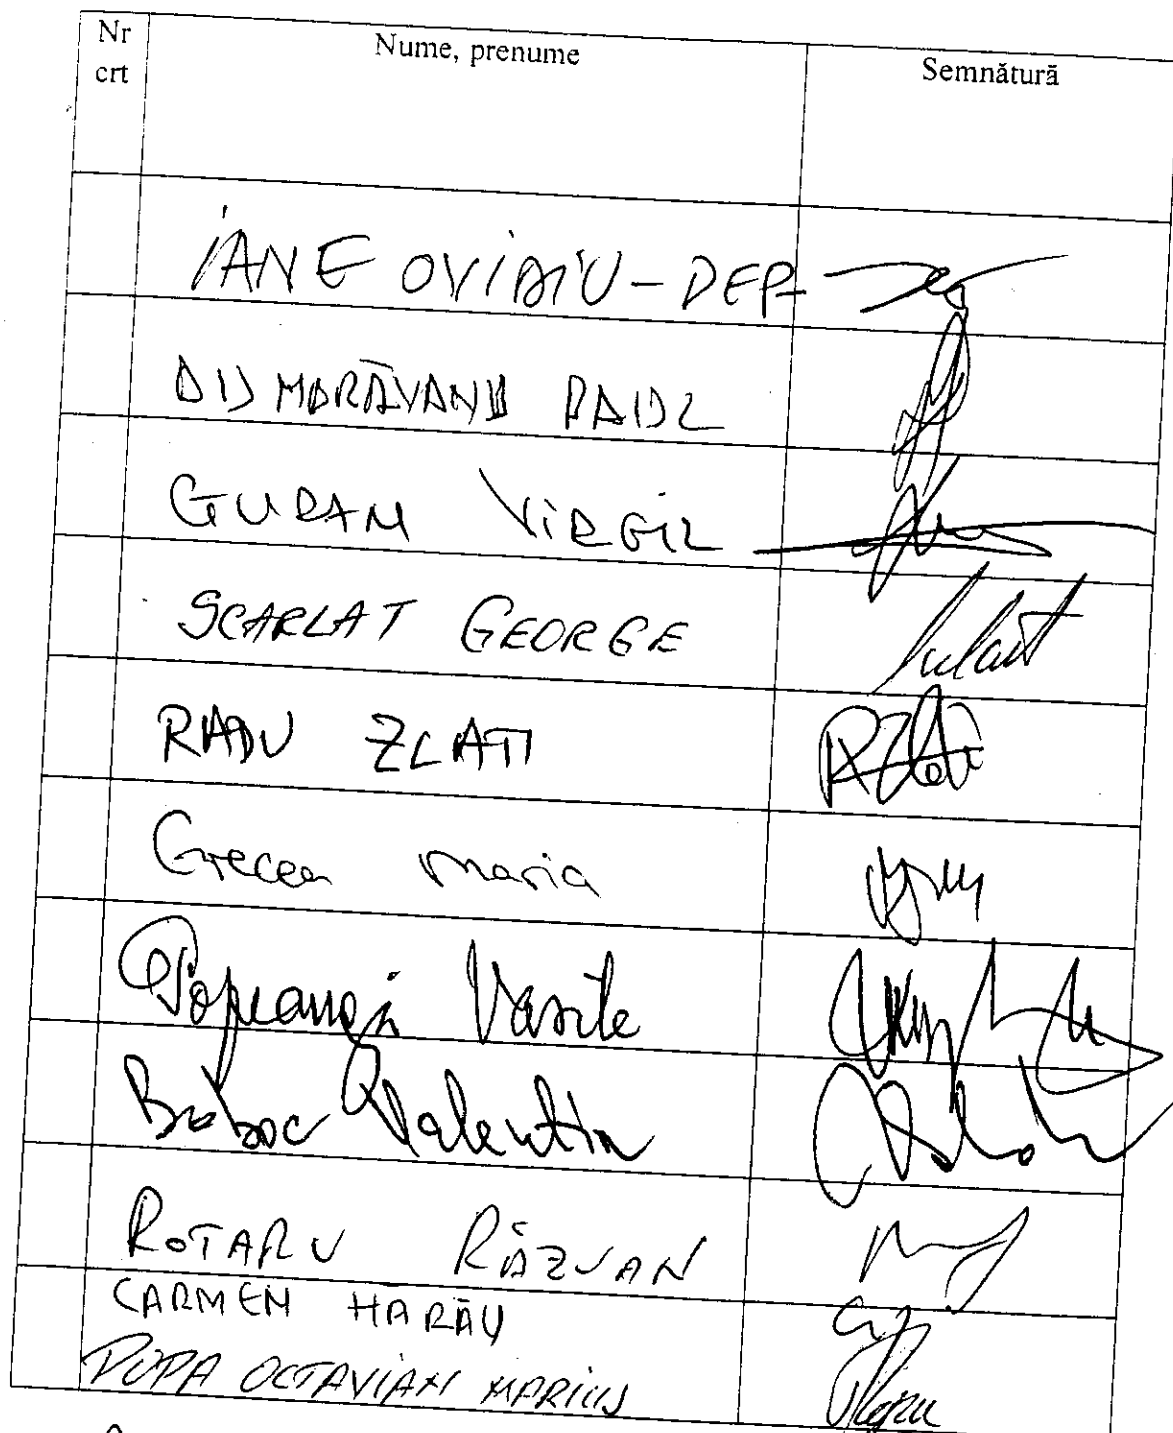 Nr crt Nume, prenume Semnătură
IANE OVIDIU - DEP.
MORĂVANU
GURAM VIRGIL
SCARLAT GEORGE
RADU ZLATI
Grecea Maria
Popeangă Vasile
Boboc Valentin
ROTARU RĂZVAN
CARMEN HĂRĂU
POPA OCTAVIAN MARIUS